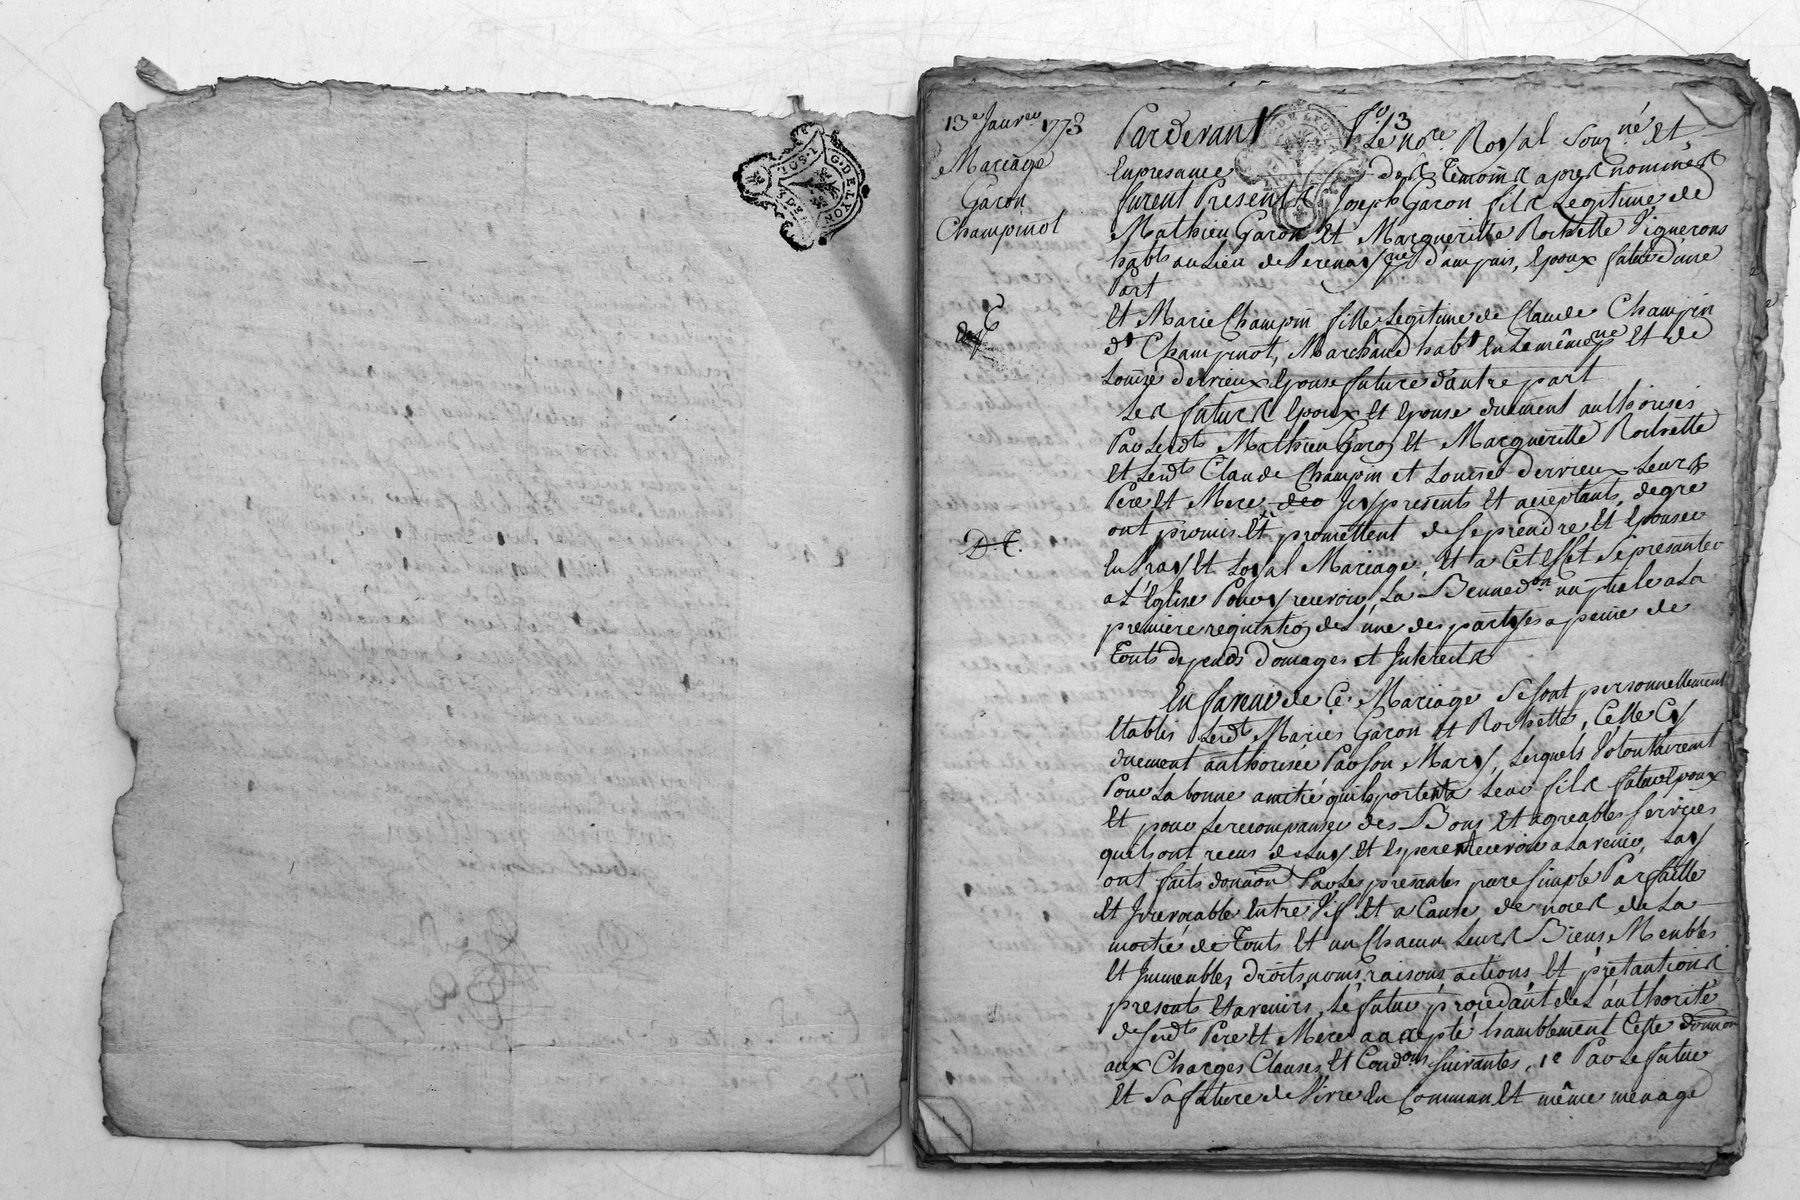 G. DE LYON
13e Janver 1773
Mariage
Garon
Champinot
D. C.
fo. 13
Pardevant Le nore. Royal Sousné Et
En presance des Temoins apres nommés
furent Presents Joseph Garon fils Legitime de
Mathieu Garon Et Margueritte Rochette Vignerons
habts au Lieu de Verenay psse d'ampuis, Epoux futur d'une
Part
Et Marie Champin fille Legitime de Claude Champin
dt Champinot, Marchand habt En Le même psse Et de
Louise dervieux Epouse future d'autre part
Les futurs Epoux Et Epouse duement authorisés
Par Lesdts Mathieu Garon Et Margueritte Rochette
Et Lesdts Claude Champin et Louise dervieux Leurs
Pere Et Mere Icy presents Et acceptants, de gré
ont promis Et promettent de se prendre Et Epouser
En Vray Et Loyal Mariage, Et a Cet Effet Se presanter
a L'Eglise Pour y recevoir La Benned.on nuptiale a La
premiere requisition de L'une des partyes a peine de
Touts depends domages et Interests
En faveur de Ce Mariage Se sont personnellement
Etablis Lesdts Mariés Garon Et Rochette, Cette Cy
duement authorisée Par son Mary, Lesquels Volontairement
Pour La bonne amitié quils portent a Leur fils futur Epoux
Et pour Le recompanser des Bons Et agreables services
quils ont recus de Luy Et esperent recevoir a Lavenir, Luy
ont faits donnaon Par Les presantes pure simple Parfaitte
Et Irrevocable Entre Vifs Et a Cause de noces de La
moitié de Touts Et un Chacun Leurs Biens Meubles
Et Immeubles, droits, noms, raisons, actions, Et prétantions
presents Et avenirs, Le futur procédant de L'authorité
de sesdts Pere Et Mere a accepté humblement Cette donnaon
aux Charges Clauses Et Condons suivantes, 1e Par Le futur
Et Sa future de Vivre En Commun Et même ménage